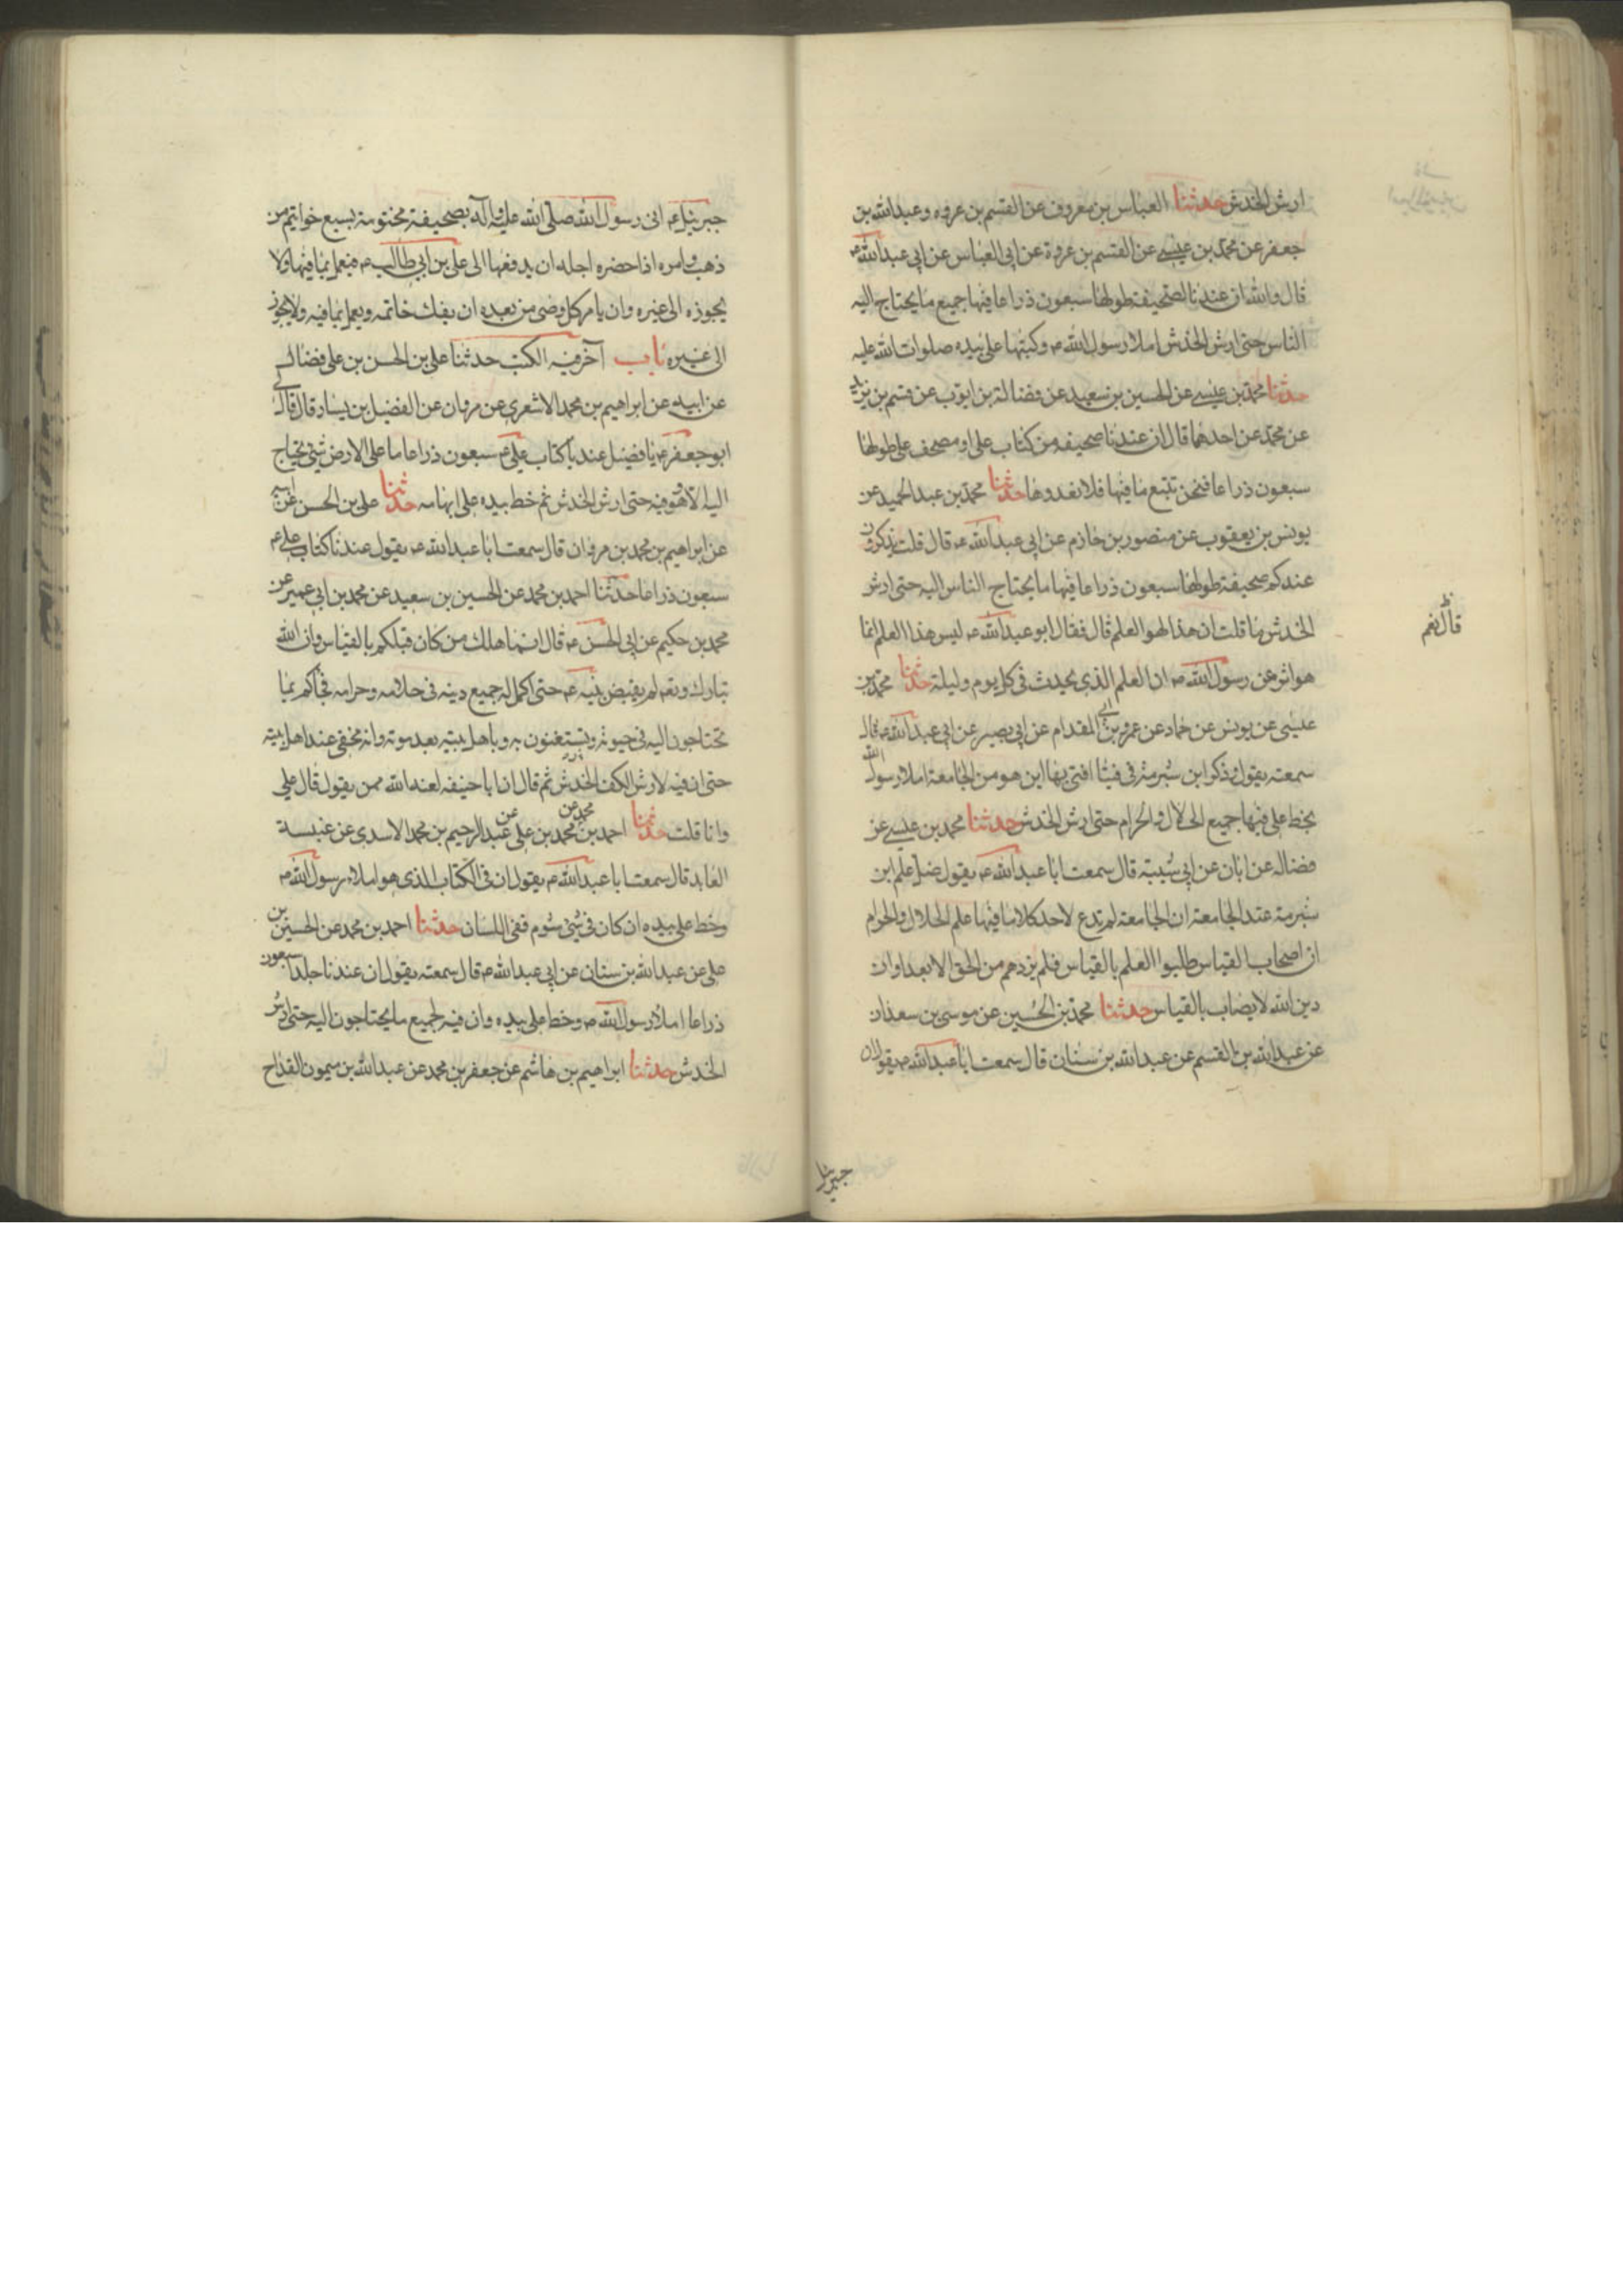 ارش الخدش حدثنا العباس بن معروف عن القسم بن عروه وعبدالله بن
جعفر عن محمد بن عيسى عن القسم بن عروة عن ابي العباس عن ابي عبدالله ع
قال والله ان عندنا لصحيفة طولها سبعون ذراعا فيها جميع ما يحتاج اليه
الناس حتى ارش الخدش املاء رسول الله ص وكتبها علي بيده صلوات الله عليه
حدثنا محمد بن عيسى عن الحسين بن سعيد عن فضالة بن ايوب عن قسم بن بريد
عن محمد عن احدهما قال ان عندنا صحيفه من كتاب علي او مصحف علي طولها
سبعون ذراعا فنحن نتبع ما فيها فلا نعدوها حدثنا محمد بن عبد الحميد عن
يونس بن يعقوب عن منصور بن حازم عن ابي عبدالله ع قال قلت يذكرون
عندكم صحيفة طولها سبعون ذراعا فيها ما يحتاج الناس اليه حتى ارش
الخدش قلت ان هذا لهو العلم قال فقال ابو عبدالله ع ليس هذا العلم انما
قال نعم
هو اثر عن رسول الله ص ان العلم الذي يحدث في كل يوم وليلة حدثنا محمد بن
عيسى عن يونس عن حماد عن عمرو بن ابي المقدام عن ابي بصير عن ابي عبدالله ع قال
سمعته يقول وذكر ابن شبرمة في فتيا افتى بها اين هو من الجامعة املاء رسول الله
بخط علي فيها جميع الحلال والحرام حتى ارش الخدش حدثنا محمد بن عيسى عن
فضاله عن ابان عن ابي شيبة قال سمعت ابا عبدالله ع يقول ضل علم ابن
شبرمة عند الجامعة ان الجامعة لم تدع لاحد كلاما فيها علم الحلال والحرام
ان اصحاب القياس طلبوا العلم بالقياس فلم يزدهم من الحق الا بعدا وان
دين الله لا يصاب بالقياس حدثنا محمد بن الحسين عن موسى بن سعدان
عن عبدالله بن القسم عن عبدالله بن سنان قال سمعت ابا عبدالله ع يقول ان
جبرئيل
جبرئيل ع اتى رسول الله صلى الله عليه وآله بصحيفة مختومة بسبع خواتيم من
ذهب وامره اذا حضره اجله ان يدفعها الى علي بن ابي طالب ع فيعمل بما فيها ولا
يجوزه الى غيره وان يامر كل وصي من بعده ان يفك خاتمه ويعمل بما فيه ولا يجوز
الى غيره باب آخر فيه الكتب حدثنا علي بن الحسن بن علي فضال
عن ابيه عن ابراهيم بن محمد الاشعري عن مروان عن الفضيل بن يسار قال قال لي
ابو جعفر ع يا فضيل عندنا كتاب علي ع سبعون ذراعا ما على الارض شيء يحتاج
اليه الا وهو فيه حتى ارش الخدش ثم خط بيده على ابهامه حدثنا علي بن الحسن عن ابيه
عن ابراهيم بن محمد بن مروان قال سمعت ابا عبدالله ع يقول عندنا كتاب علي ع
سبعون ذراعا حدثنا احمد بن محمد عن الحسين بن سعيد عن محمد بن ابي عمير عن
محمد بن حكيم عن ابي الحسن ع قال انما هلك من كان قبلكم بالقياس وان الله
تبارك وتع لم يقبض نبيه ع حتى اكمل له جميع دينه في حلاله وحرامه فجاءكم بما
تحتاجون اليه في حيوته وتستغنون به وباهل بيته بعد موته وانه مخفي عند اهل بيته
حتى ان فيه لارش الكف الخدش ثم قال ان ابا حنيفه لعنه الله ممن يقول قال علي
وانا قلت حدثنا احمد بن محمد عن محمد بن علي عن عبد الرحيم بن محمد الاسدي عن عنبسة
العابد قال سمعت ابا عبدالله ع يقول ان في الكتاب الذي هو املاء رسول الله ص
وخط علي بيده ان كان في شيء شوم ففي اللسان حدثنا احمد بن محمد عن الحسين بن
علي عن عبدالله بن سنان عن ابي عبدالله ع قال سمعته يقول ان عندنا جلدا سبعون
ذراعا املاء رسول الله ص وخط علي بيده وان فيه لجميع ما يحتاجون اليه حتى ارش
الخدش حدثنا ابراهيم بن هاشم عن جعفر بن محمد عن عبدالله بن ميمون القداح